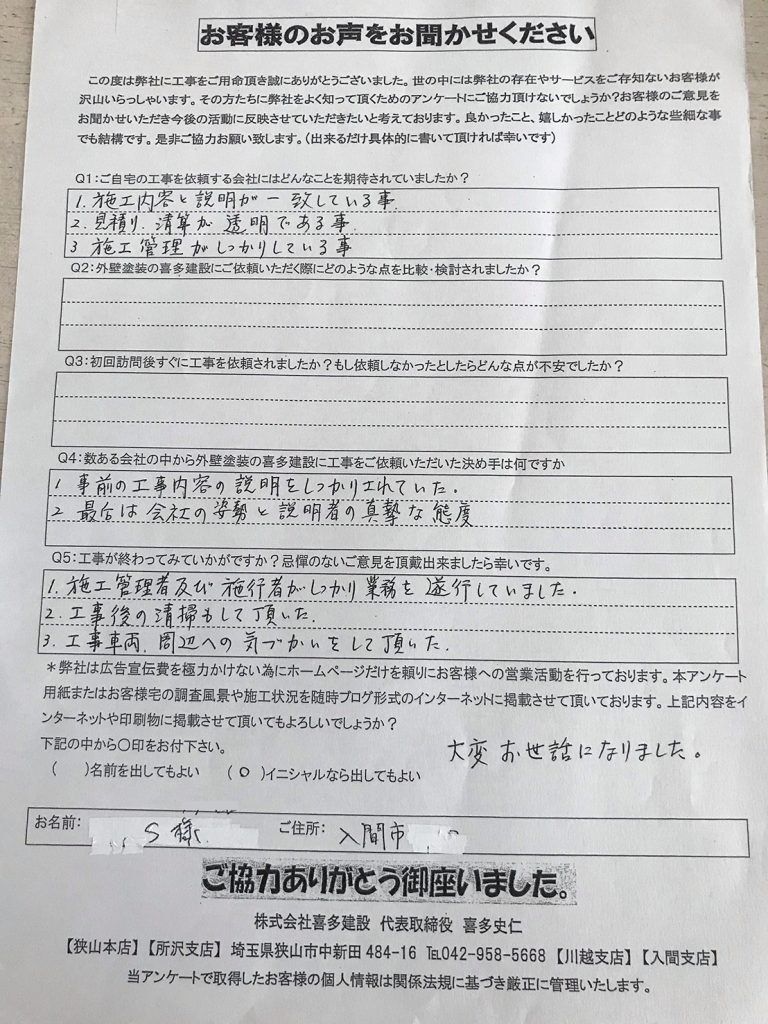 お客様のお声をお聞かせください
この度は弊社に工事をご用命頂き誠にありがとうございました。世の中には弊社の存在やサービスをご存知ないお客様が
沢山いらっしゃいます。その方たちに弊社をよく知って頂くためのアンケートにご協力頂けないでしょうか?お客様のご意見を
お聞かせいただき今後の活動に反映させていただきたいと考えております。良かったこと、嬉しかったことどのような些細な事
でも結構です。是非ご協力お願い致します。(出来るだけ具体的に書いて頂ければ幸いです)
Q1:ご自宅の工事を依頼する会社にはどんなことを期待されていましたか?
1. 施工内容と説明が一致している事
2. 見積り、清算が透明である事
3 施工管理がしっかりしている事
Q2:外壁塗装の喜多建設にご依頼いただく際にどのような点を比較・検討されましたか?
Q3:初回訪問後すぐに工事を依頼されましたか?もし依頼しなかったとしたらどんな点が不安でしたか?
Q4:数ある会社の中から外壁塗装の喜多建設に工事をご依頼いただいた決め手は何ですか
1 事前の工事内容の説明をしっかりされていた。
2 最后は会社の姿勢と説明者の真摯な態度
Q5:工事が終わってみていかがですか?忌憚のないご意見を頂戴出来ましたら幸いです。
1. 施工管理者及び施行者がしっかり業務を遂行していました。
2. 工事後の清掃もして頂いた.
3. 工事車両、周辺への気づかいをして頂いた.
*弊社は広告宣伝費を極力かけない為にホームページだけを頼りにお客様への営業活動を行っております。本アンケート
用紙またはお客様宅の調査風景や施工状況を随時ブログ形式のインターネットに掲載させて頂いております。上記内容をイ
ンターネットや印刷物に掲載させて頂いてもよろしいでしょうか?
下記の中から〇印をお付下さい。
大変お世話になりました。
( )名前を出してもよい (○)イニシャルなら出してもよい
お名前: S様 ご住所: 入間市
ご協力ありがとう御座いました。
株式会社喜多建設 代表取締役 喜多史仁
【狭山本店】【所沢支店】 埼玉県狭山市中新田484-16 ℡042-958-5668 【川越支店】【入間支店】
当アンケートで取得したお客様の個人情報は関係法規に基づき厳正に管理いたします。